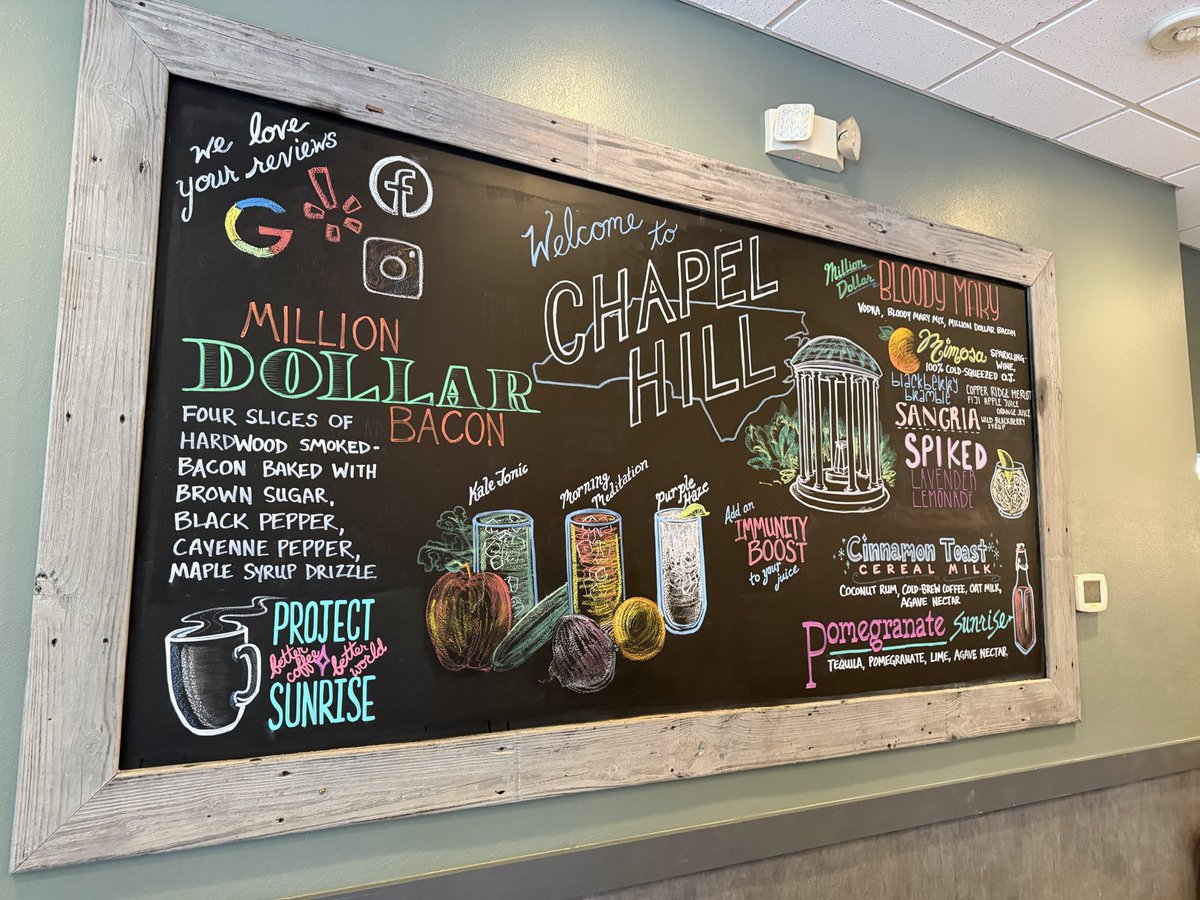 we love
your reviews
Welcome to
CHAPEL
HILL
MILLION
DOLLAR
BACON
FOUR SLICES OF
HARDWOOD SMOKED-
BACON BAKED WITH
BROWN SUGAR,
BLACK PEPPER,
CAYENNE PEPPER,
MAPLE SYRUP DRIZZLE
PROJECT
better coffee better world
SUNRISE
Kale Tonic
Morning
Meditation
Purple
Haze
Add an
IMMUNITY
BOOST
to your
juice
Million
Dollar
BLOODY MARY
VODKA, BLOODY MARY MIX, MILLION DOLLAR BACON
Mimosa
SPARKLING-
WINE,
100% COLD-SQUEEZED O.J.
blackberry
bramble
SANGRIA
COPPER RIDGE MERLOT
FIJI APPLE JUICE
ORANGE JUICE
WILD BLACKBERRY
SYRUP
SPIKED
LAVENDER
LEMONADE
Cinnamon Toast
CEREAL MILK
COCONUT RUM, COLD-BREW COFFEE, OAT MILK,
AGAVE NECTAR
Pomegranate Sunrise
TEQUILA, POMEGRANATE, LIME, AGAVE NECTAR